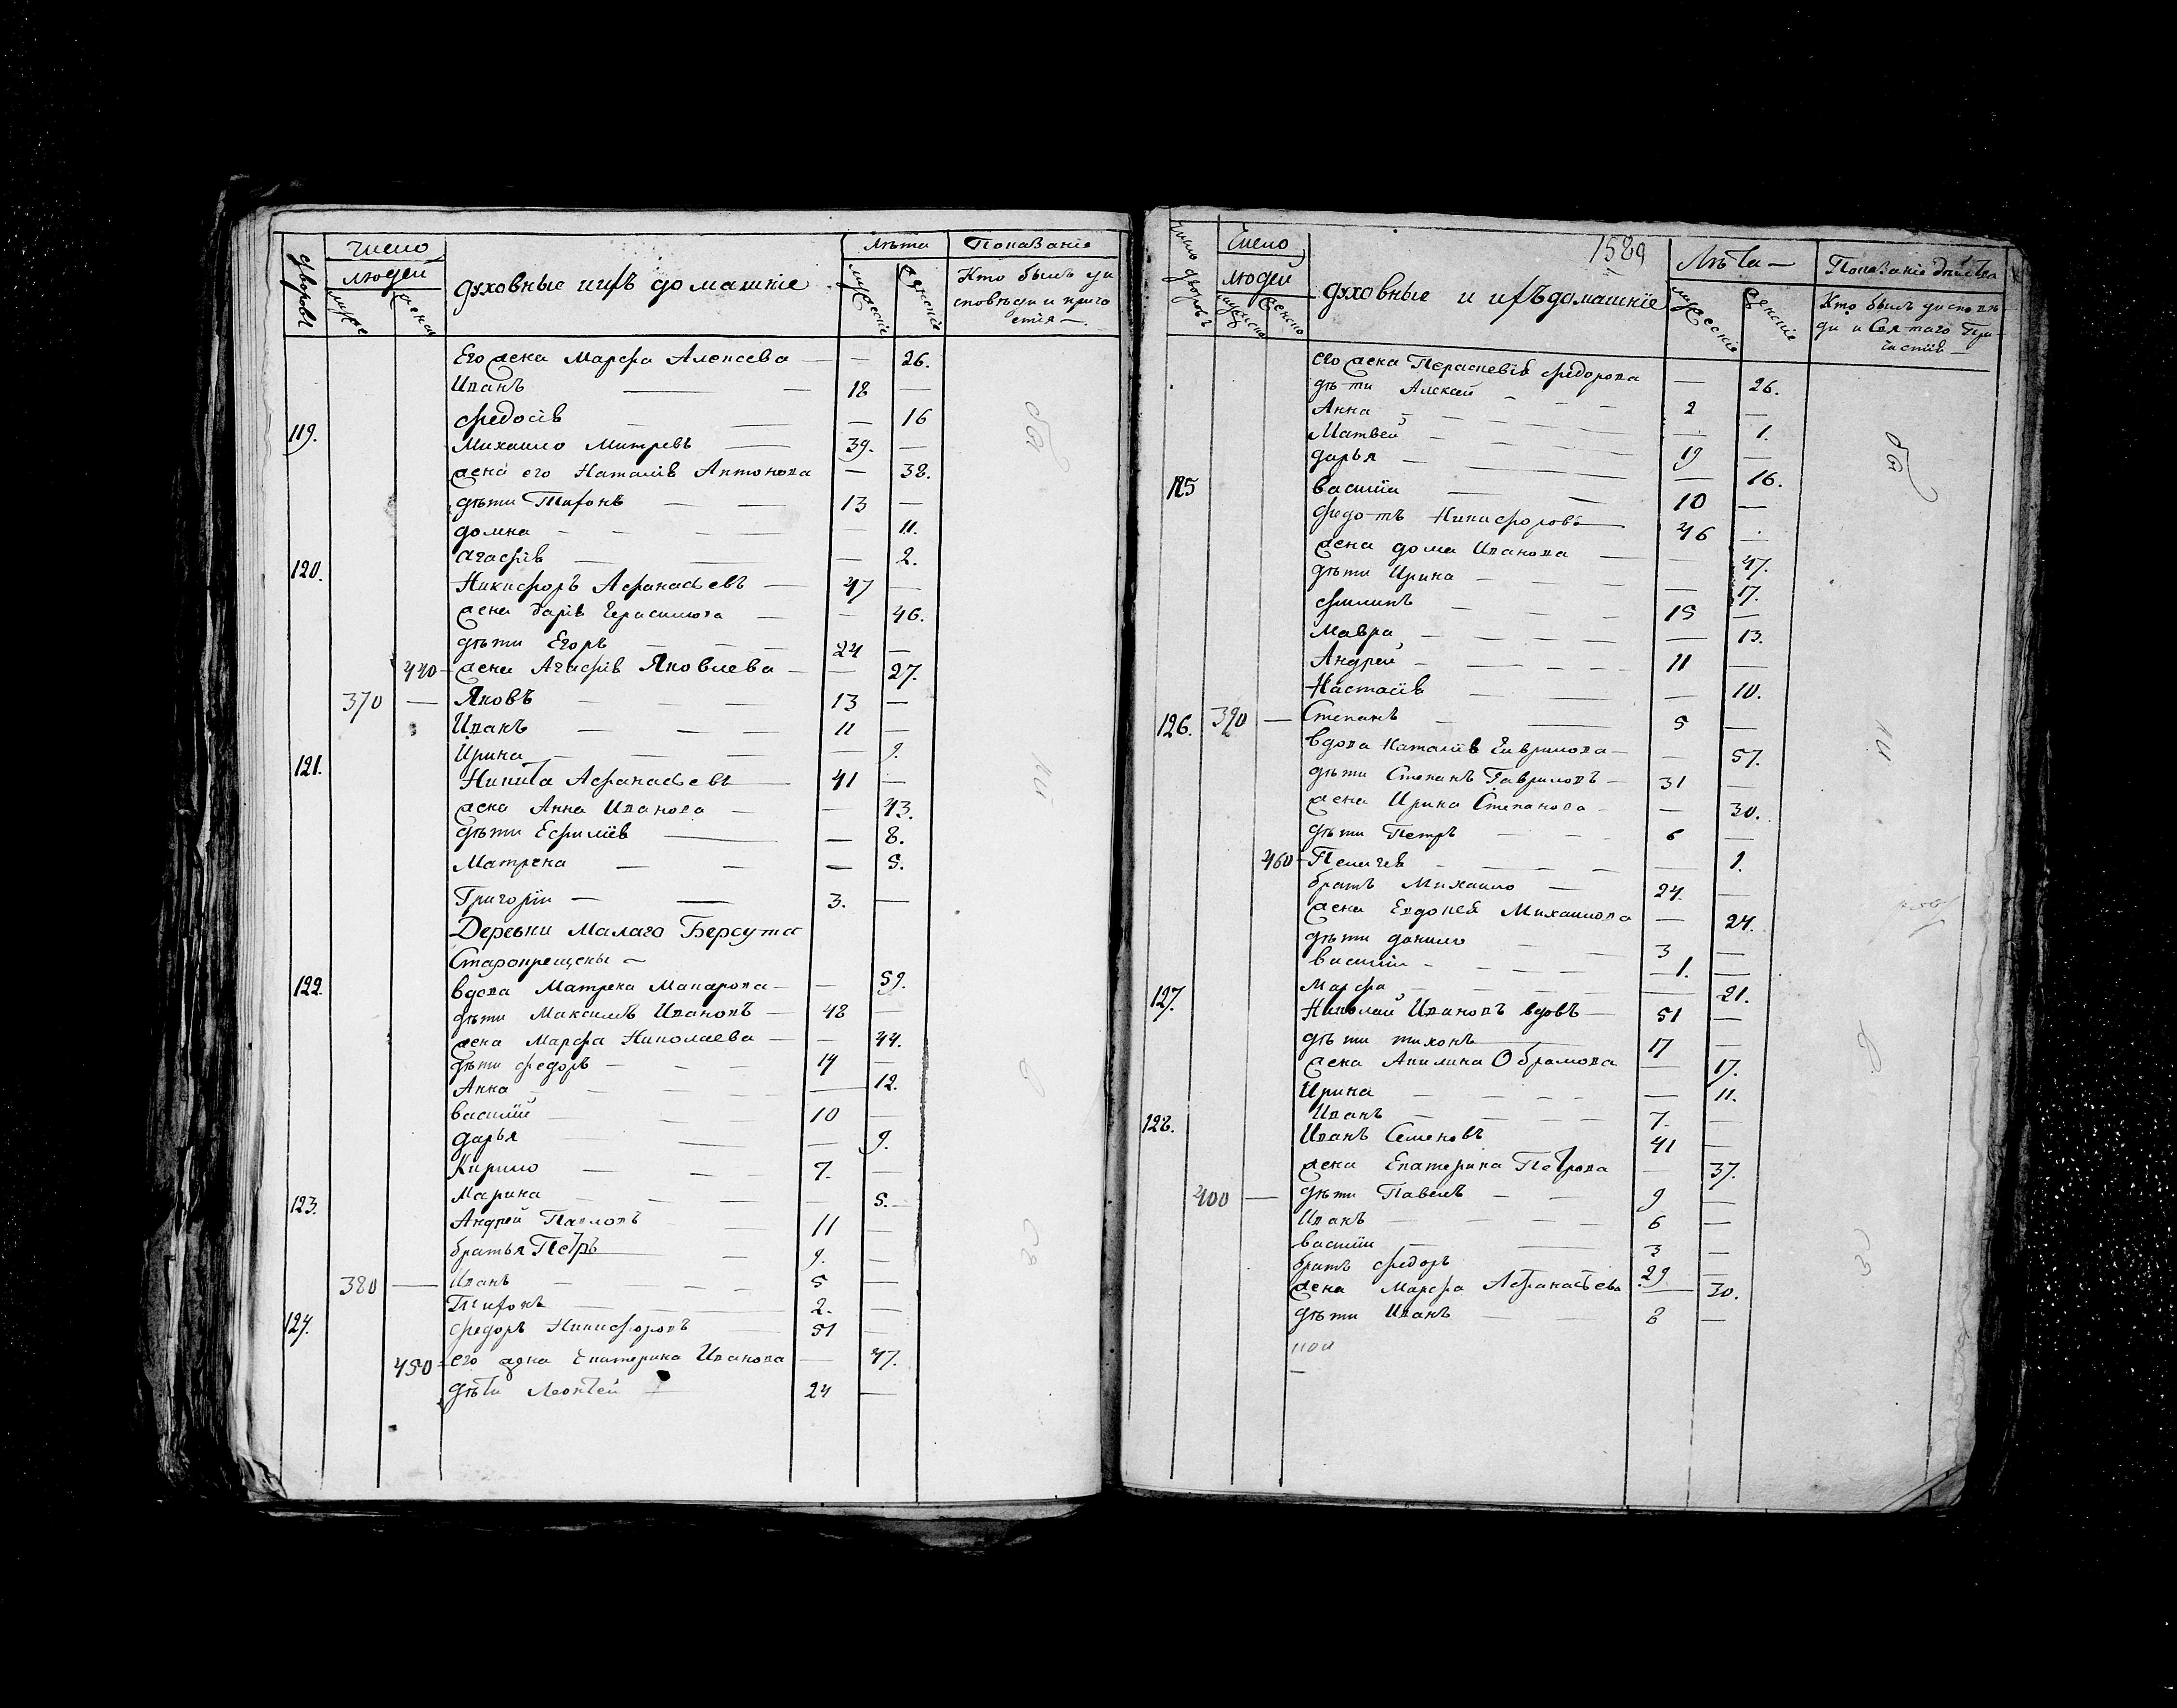 дворовъ
число
людей
мужес
женс
духовные и ихъ домашніе
лѣта
мужескіе
женскіе
Показаніе
Кто былъ у и
сповѣди и прича
стія —
Его жена Марфа Алексева — — 26.
Иванъ — 18 —
Федосія — — 16
119. Михаило Митревъ — 39. —
жена его Наталія Антонова — 38.
дѣти Тихонъ — 13 —
домна — — 11.
Агафія — — 2.
120. Никифоръ Афанасьевъ — 47 —
жена дарія Герасимова — — 46.
дѣти Егоръ — 24 —
440 — жена Агафія Яковлева — — 27.
370 — Яковъ — 13 —
Иванъ — 11 —
Ирина — — 9.
121. Никита Афанасьевъ — 41 —
жена Анна Иванова — — 43.
дѣти Ефимія — — 8.
Матрена — — 5.
Григорій — 3. —
Деревни Малаго Берсута
Старокрещены —
122. вдова Матрена Макарова — — 59.
дѣти Максимъ Ивановъ — 48 —
жена Марфа Николаева — — 44.
дѣти федоръ — 14 —
Анна — — 12.
василій — 10 —
дарья — — 9.
Кирило — 7. —
Марина — — 5. —
123. Андрей Павловъ — 11 —
братья Петръ — 9. —
380 — Иванъ — 5 —
Тихонъ — 2. —
124. федоръ Никифоровъ — 51 —
450 — его жена Екатерина Иванова — 47.
дѣти Леонтей — 24 —
число дворовъ
Число
людей
мужеско
женско
1589
духовные и ихъ домашніе
Лѣта —
мужескіе
женскіе
Кто былъ у исповѣ
ди и Святаго При
частія —
его жена Парасковія федорова — 26.
дѣти Алексей — 2 —
Анна — — 1.
Матвей — 19 —
дарья — — 16.
василій — 10 —
125 федотъ Никифоровъ — 46
жена дома Иванова — — 47.
дѣти Ирина — — 17.
филипъ — 15 —
Мавра — — 13.
Андрей — 11 —
Настасія — — 10.
390 — Степанъ — 5 —
126. вдова Наталія Гаврилова — — 57.
дѣти Степанъ Гавриловъ — 31 —
жена Ирина Степанова — — 30.
дѣти Петръ — 6 —
460 — Пелагея — — 1.
братъ Михаило — 24. —
жена Евдокея Михаилова — 24.
дѣти данило — 3 —
василій — 1. —
Марфа — — 21.
127. Николай Ивановъ вдовъ — 51 —
дѣти тихонъ — 17 —
жена Акилина Обрамова — 17.
Ирина — — 11.
Иванъ — 7. —
128. Иванъ Семеновъ 41 —
жена Екатерина Петрова — 37.
400 — дѣти Павелъ — 9 —
Иванъ — 6 —
василій — 3 —
братъ федоръ 29 —
жена Марфа Афанасьева — 30.
дѣти Иванъ — 8 —